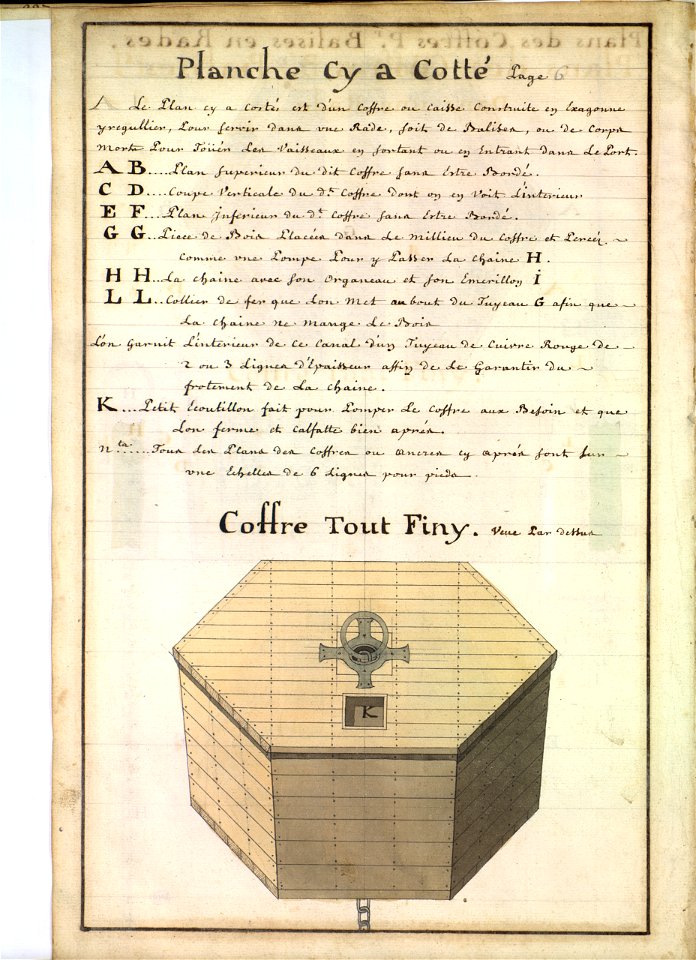 Planche Cy a Cotté Page 6
Le Plan cy a costé est d'un Coffre ou Caisse Construite en Exagonne
yregullier, Pour servir dans vne Rade, soit de Balises, ou de Corps
Morts Pour Toüér Les Vaisseaux en sortant ou en Entrant dans Le Port.
A B....Plan superieur Du dit Coffre sans Estre Bordé.
C D....Coupe Verticale du dt. Coffre Dont on en Voit L'interieur
E F...Plan jnferieur du dt. Coffre sans Estre Bordé.
G G..Piece de Bois Placéés dans Le Millieu du Coffre et Percéé
Comme vne Pompe Pour y Passer La chaine H.
H H..La chaine avec son Organeau et son Emerillon i
L L..Collier de fer que L'on Met au bout du Tuyeau G afin que
La chaine Ne Mange Le Bois
L'on Garnit L'interieur de Ce Canal d'un Tuyeau de Cuivre Rouge de
2 ou 3 Lignes d'Epaisseur affin de Le Garantir du
frotement de La chaine.
K...Petit Ecoutillon fait pour Pomper Le Coffre aux Besoin et que
L'on ferme et Calfatte bien aprés.
nta......Tous Les Plans des Coffres ou Ancres cy aprés sont sur
vne Echelles de 6 Lignes pour pieds.
Coffre Tout Finy. Veüe Par dessus
K